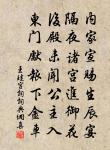 内家宣赐生辰宴
隔夜诸宫进御花
后殿未闻公主入
东门献报下金车
王珪宫词 词典网